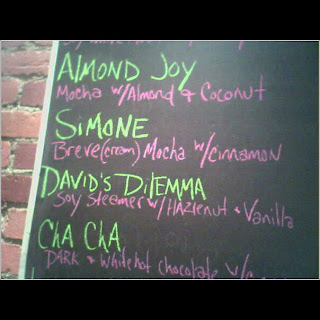 ALMOND JOY
Mocha w/Almond & Coconut
SiMONE
Breve(cream) Mocha w/cinnamon
DAVID'S DilEMMA
Soy Steamer w/ HAZlenut & Vanilla
CHA CHA
DARK & White hot chocolate w/